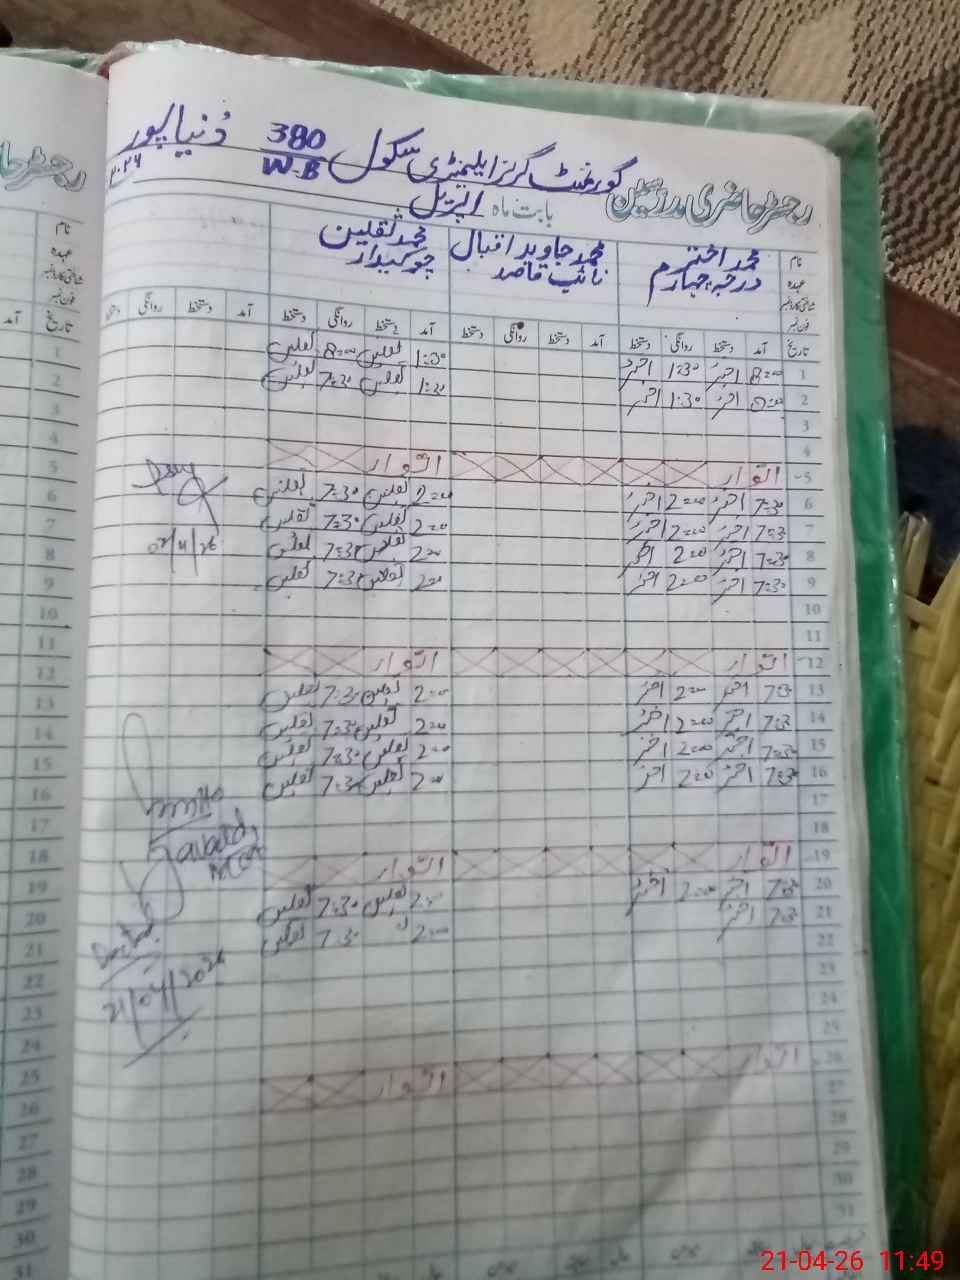 رجسٹر حاضری مدرسین گورنمنٹ گرلز ایلیمنٹری سکول 380 W-B دُنیاپور
بابت ماہ اپریل
نام محمد اختر محمد جاوید اقبال محمد ثقلین
عہدہ درجہ چہارم نائب قاصد چوکیدار
فون نمبر
تاریخ آمد دستخط روانگی دستخط آمد دستخط روانگی دستخط آمد دستخط روانگی دستخط آمد دستخط روانگی
1 8=00 اختر 1:30 اختر 1:30 ثقلین 8=00 ثقلین
2 8=00 اختر 1:30 اختر 1:30 ثقلین 7=30 ثقلین
3
4
5 اتوار اتوار
6 7=30 اختر 2=00 اختر 2=00 ثقلین 7=30 ثقلین
7 7=30 اختر 2=00 اختر 2=00 ثقلین 7=30 ثقلین
8 7=30 اختر 2=00 اختر 2=00 ثقلین 7=30 ثقلین
9 7=30 اختر 2=00 اختر 2=00 ثقلین 7=30 ثقلین
10
11
12 اتوار اتوار
13 7=30 اختر 2=00 اختر 2=00 ثقلین 7=30 ثقلین
14 7=30 اختر 2=00 اختر 2=00 ثقلین 7=30 ثقلین
15 7=30 اختر 2=00 اختر 2=00 ثقلین 7=30 ثقلین
16 7=30 اختر 2=00 اختر 2=00 ثقلین 7=30 ثقلین
17
18
19 اتوار اتوار
20 7=30 اختر 2=00 اختر 2=00 ثقلین 7=30 ثقلین
21 7=30 اختر 2=00 7=30 ثقلین
22
23
24
25
26 اتوار اتوار
27
28
29
30
31
21/04/2026
رجسٹر
نام
عہدہ
فون نمبر
تاریخ
آمد
1
2
3
4
5
6
7
8
9
10
11
12
13
14
15
16
17
18
19
20
21
22
23
24
25
26
27
28
29
30
31
21-04-26 11:49